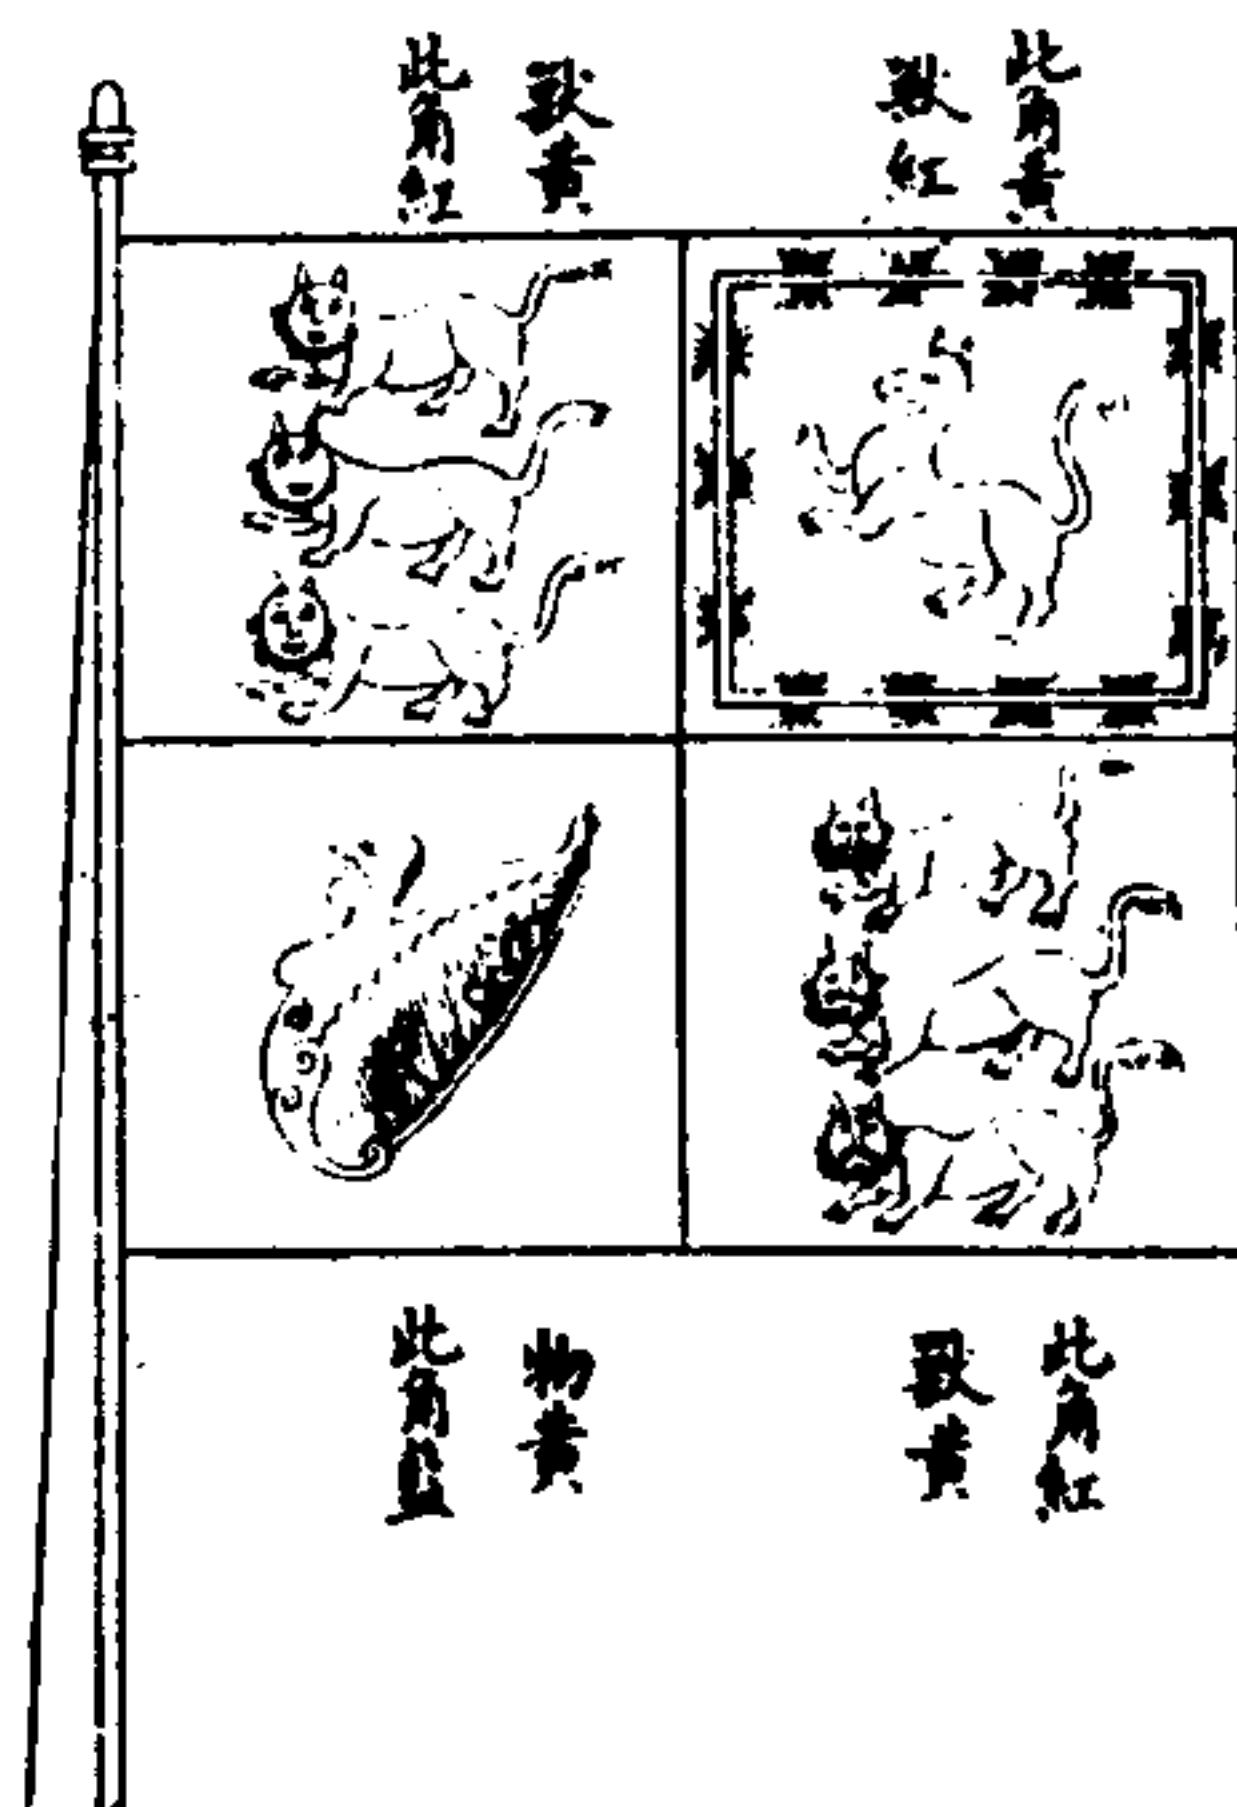 此角黃
獸紅
獸黃
此角紅
此角紅
獸黃
物黃
此角藍